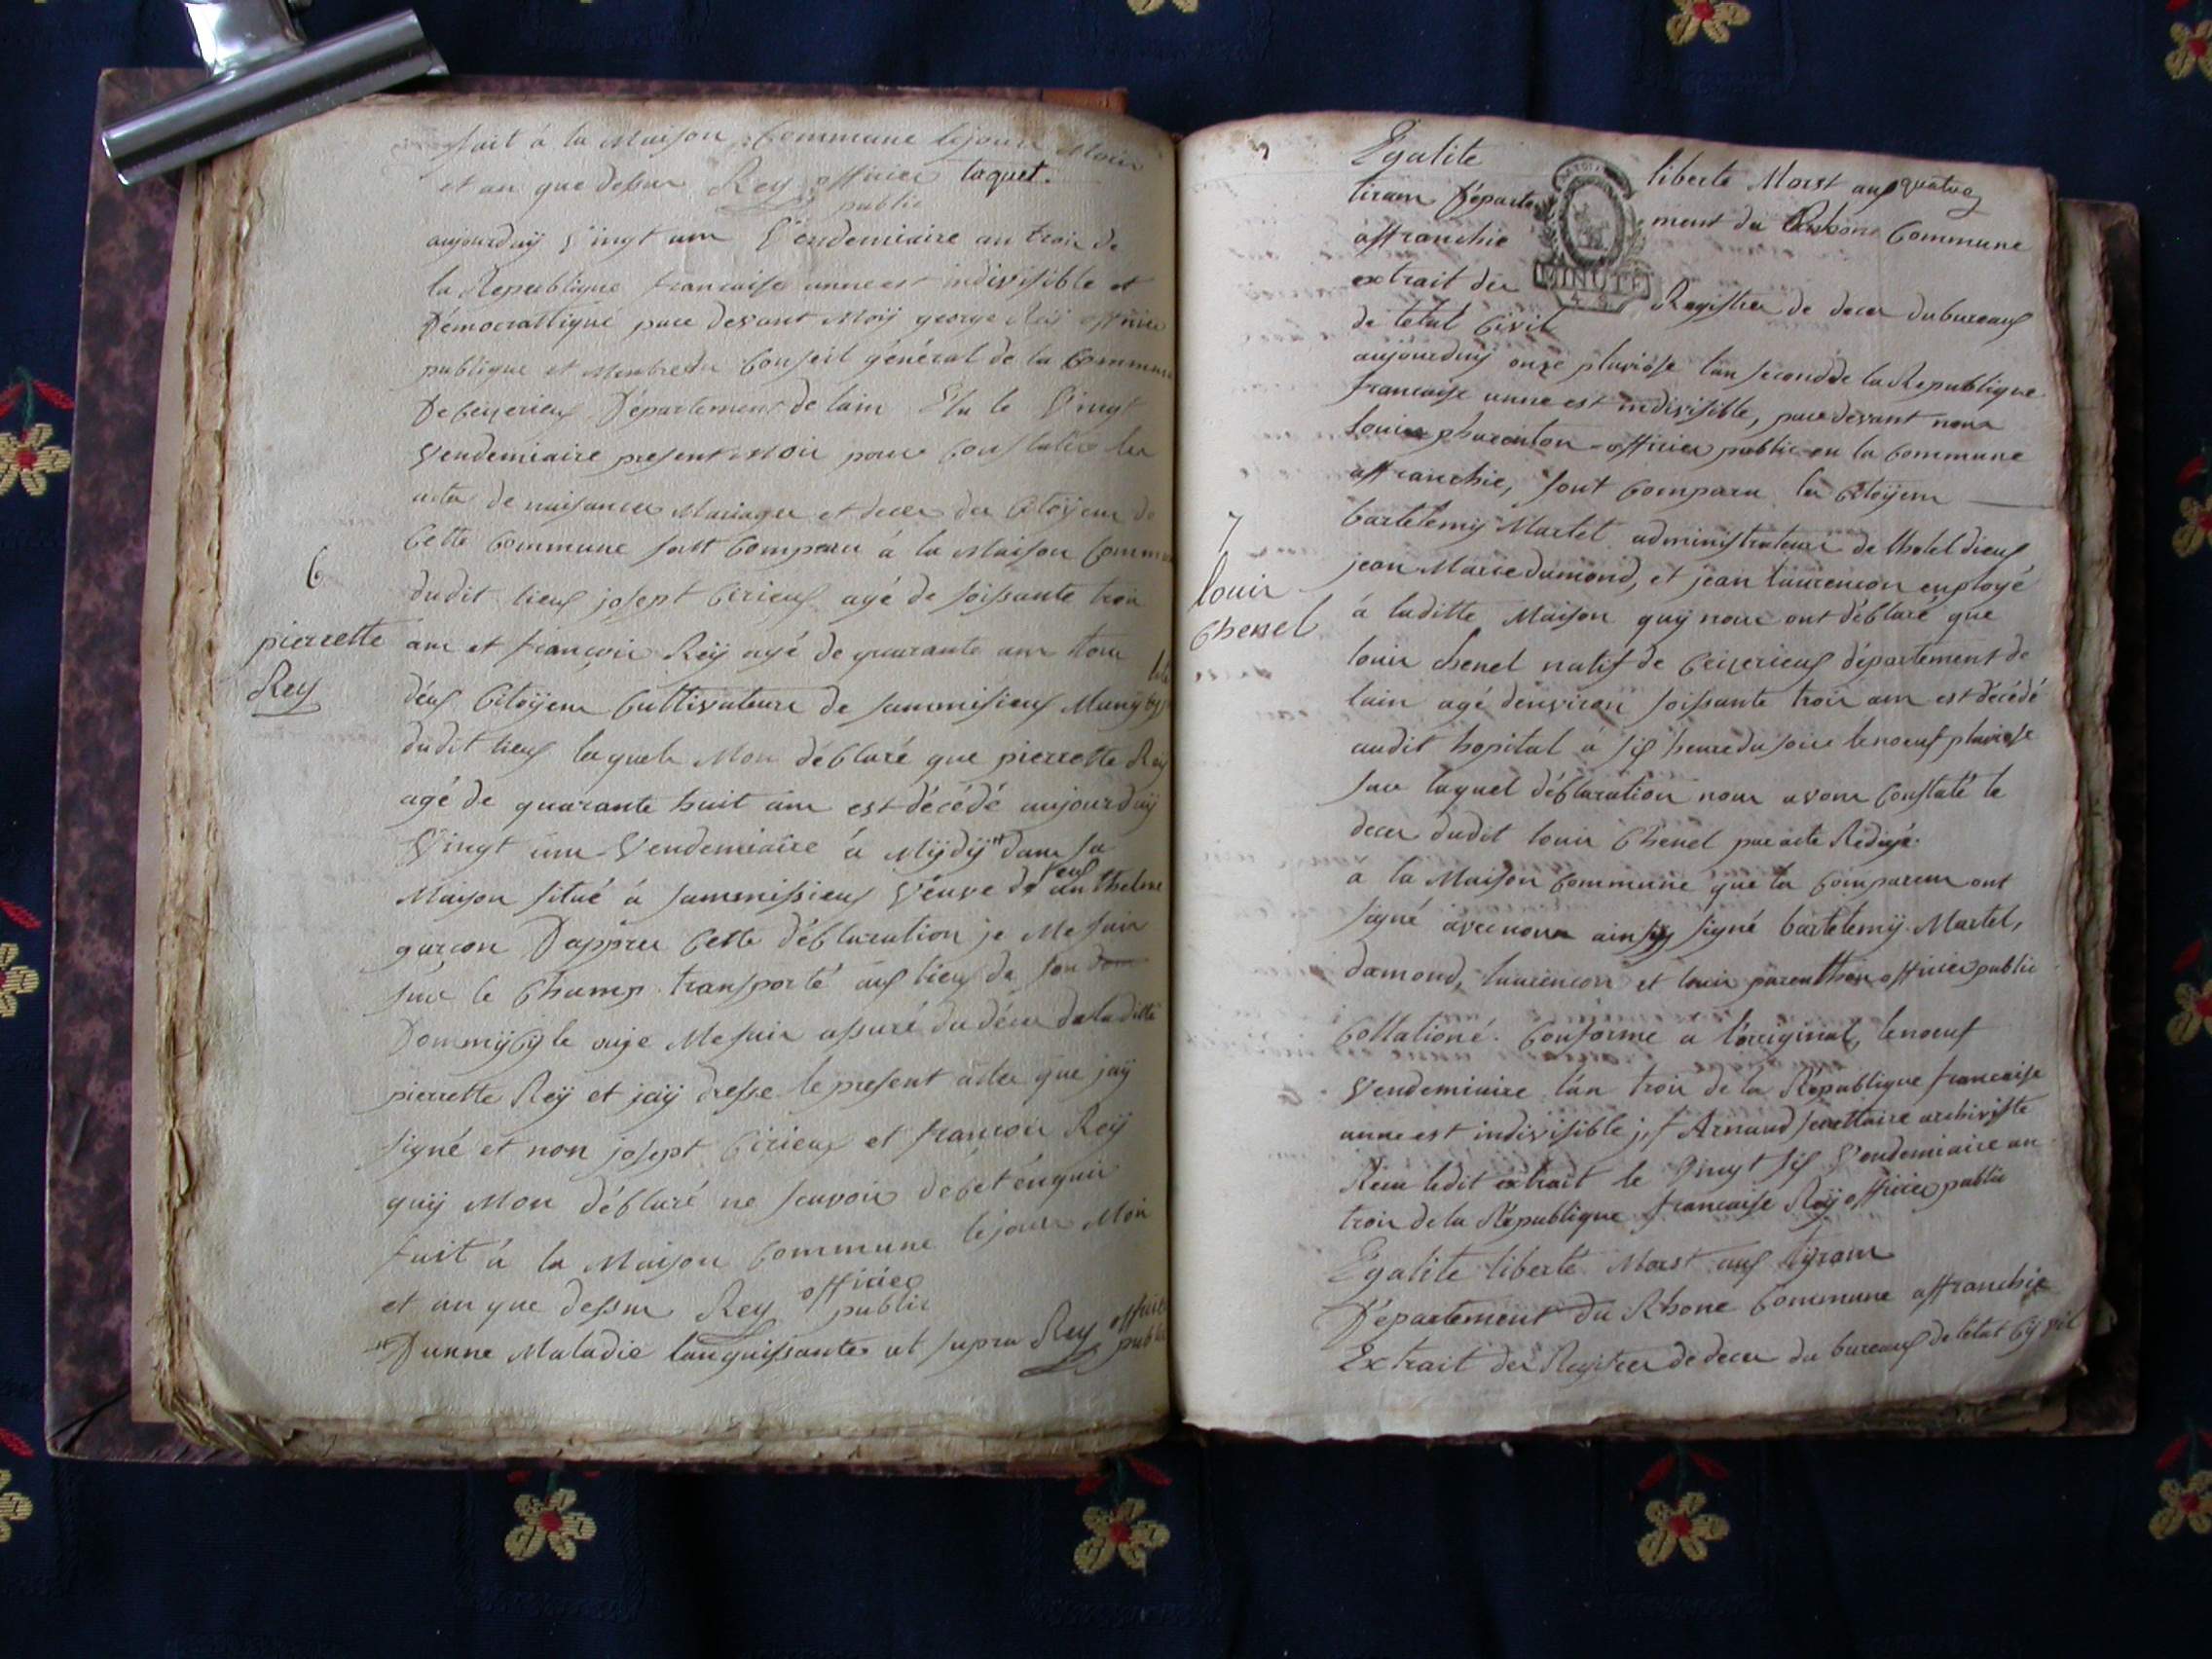 fait à la Maison Commune lejour Mois
et an que dessus Rey officier laquet.
public
aujourduÿ Vingt un Vendemiaire an trois de
la Republique francaise unne est indivisible et
Démocratique pare devant Moÿ george Reÿ officier
publique et Membre du Conseil général de la Commune
De Ceÿzerieux Département de lain Elu le Vingt
Vendemiaire present Mois pour Constater les
actes de naisances Mariages et deces des Citoÿens de
Cette Commune sont Comparu à la Maison Commune
6
dudit lieux josept Cirieux agé de soissante trois
pierrette
ans et francois Reÿ agé de quarante ans tous
Rey
deux Citoÿens Cultivateurs de sammisieux
dudit lieux laquels Mon déblaré que pierrette Reÿ
agé de quarante huit ans est décédé aujourduÿ
Vingt un Vendemiaire à Mÿdÿ dans sa
Maison situé à sammissieux Veuve de feux anthelme
garcon Dappres Cette déblaration je Me suis
sur le Champ transporté aux lieux de son
Dommÿcÿle ouje Me suis assuré du déces de laditte
pierrette Reÿ et jaÿ dresse le present actes que jaÿ
signé et non josept Cirieux et francois Reÿ
quÿ Mon déblaré ne scavoir de cet enquis
fait à la Maison Commune lejour Mois
et an que dessus Rey officier
public
Dunne Maladie languissantes ut supra Rey officier
public
Egalite liberte Morst aux quatre
tirans Departement du Rhone Commune
affranchie
MINUTE
extrait des Registres de deces du bureaux
de letat Civil
aujourduÿ onze pluviose lan second de la Republique
francaise unne est indivisible, pare devant nous
Louis pharenton officier public en la Commune
affranchie, sont Comparu les Citoÿens
7
bartelemÿ Martel administrateur de lhotel dieux
jean Marie damond, et jean laurencon employé
Louis
Chenel
à laditte Maison quÿ nous ont déblaré que
louis Chenel natif de Ceizerieux département de
lain agé denviron soissante trois ans est décédé
audit hopital à six heure du soir le noeuf pluviose
sur laquel déblaration nous avons Constaté le
deces dudit louis Chenel par acte Rédigé
à la Maison Commune que les Comparens ont
signé avec nous ainsÿ signé bartelemÿ Martel,
damond, laurencon et louis parenthon officier public
Collationé Conforme a lóriginal, le noeuf
Vendemiaire lan trois de la Republique francaise
unne est indivisible j, f Arnaud secrettaire archiviste
Recu ledit extrait le Vingt six Vendemiaire an
trois de la République francaise Reÿ officier public
Egalite liberté Morst aux tÿrans
Département du Rhone Commune affranchie
Extrait des Registres de deces du bureaux de létat Cÿvil